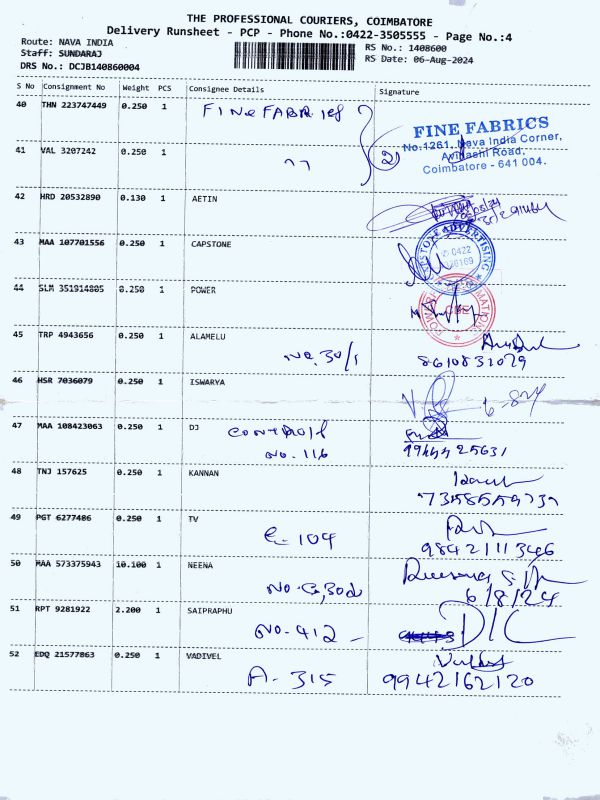 THE PROFESSIONAL COURIERS, COIMBATORE
Delivery Runsheet - PCP - Phone No.:0422-3505555 - Page No.:4
Route: NAVA INDIA
Staff: SUNDARAJ
DRS No.: DCJB140860004
RS No.: 1408600
RS Date: 06-Aug-2024
S No Consignment No Weight PCS Consignee Details Signature
40 THN 223747449 0.250 1 FINE FABRICS
FINE FABRICS
No.1261, Nava India Corner,
Avinashi Road,
Coimbatore - 641 004.
41 VAL 3207242 0.250 1 " 2)
42 HRD 20532890 0.130 1 AETIN
43 MAA 107701556 0.250 1 CAPSTONE
ADVERTISING
0422
44 SLM 351914805 0.250 1 POWER
POWER
CBE
45 TRP 4943656 0.250 1 ALAMELU
NO. 30/1 8610831029
46 HSR 7036079 0.250 1 ISWARYA
47 MAA 108423063 0.250 1 DJ Controls
NO. 116
48 TNJ 157625 0.250 1 KANNAN
49 PGT 6277486 0.250 1 TV
C- 104 98421 11 3466
50 MAA 573375943 10.100 1 NEENA
NO. 6/8/24
51 RPT 9281922 2.200 1 SAIPRAPHU
NO. 412 -
52 EDQ 21577863 0.250 1 VADIVEL
A- 315 9942162120